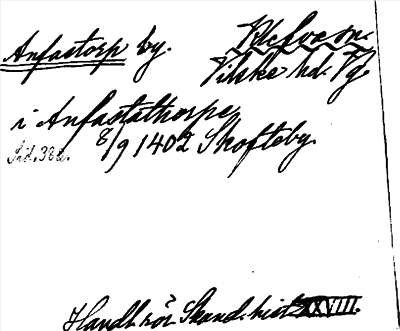 Anfastorp by. Klefva sn.
Vilske hd. Vg.
i Anfastathorpe
8/9 1402 Skofteby.
Sid. 382.
Handl. rör. Skand. hist. XXVIII.